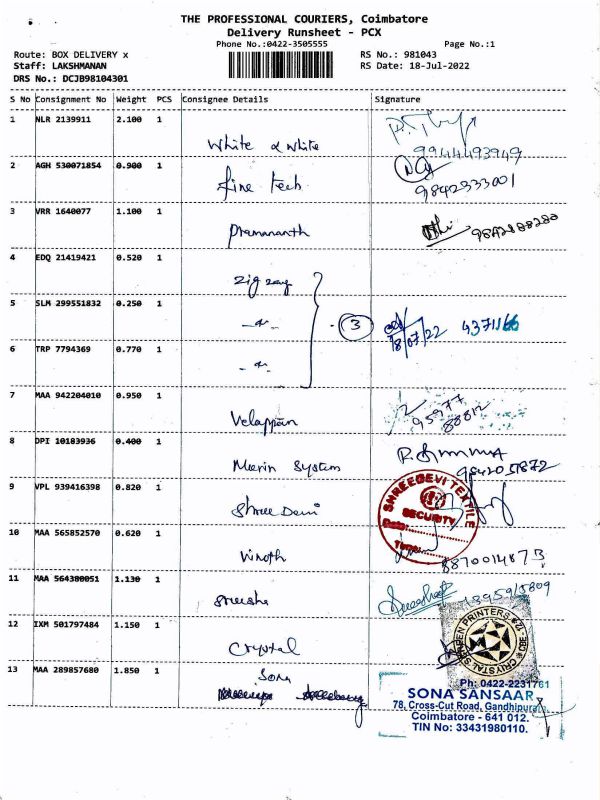 THE PROFESSIONAL COURIERS, Coimbatore
Delivery Runsheet - PCX
Phone No.:0422-3505555 Page No.:1
Route: BOX DELIVERY x RS No.: 981043
Staff: LAKSHMANAN RS Date: 18-Jul-2022
DRS No.: DCJB98104301
S No Consignment No Weight PCS Consignee Details Signature
1 NLR 2139911 2.100 1
White & White
9944493949
2 AGH 530071854 0.900 1
fine tech
9842333001
3 VRR 1640077 1.100 1
Premananth
9842188280
4 EDQ 21419421 0.520 1
zig zag
5 SLM 299551832 0.250 1
3
18/07/22 4371166
6 TRP 7794369 0.770 1
7 MAA 942204010 0.950 1
Velappan
95977
88812
8 DPI 10183936 0.400 1
Meerin System
9842051872
9 VPL 939416398 0.820 1
Shree Devi
SHREEDEVI TEXTILE
SECURITY
Date:
Time:
10 MAA 565852570 0.620 1
Vinoth
8870014873
11 MAA 564380051 1.130 1
12 IXM 501797484 1.150 1
Crystal
CRYSTAL SCREEN PRINTERS CBE - 12
13 MAA 289857680 1.850 1
Sona
Ph: 0422-2231761
SONA SANSAAR
78, Cross-Cut Road, Gandhipuram,
Coimbatore - 641 012.
TIN No: 33431980110.